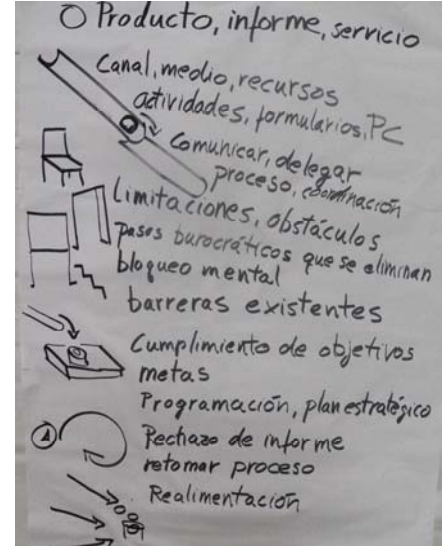 Producto, informe, servicio
Canal, medio, recursos
actividades, formularios, PC
Comunicar, delegar
proceso, coordinación
Limitaciones, obstáculos
pasos burocráticos que se eliminan
bloqueo mental
barreras existentes
Cumplimiento de objetivos
metas
Programación, plan estratégico
Rechazo de informe
retomar proceso
Realimentación